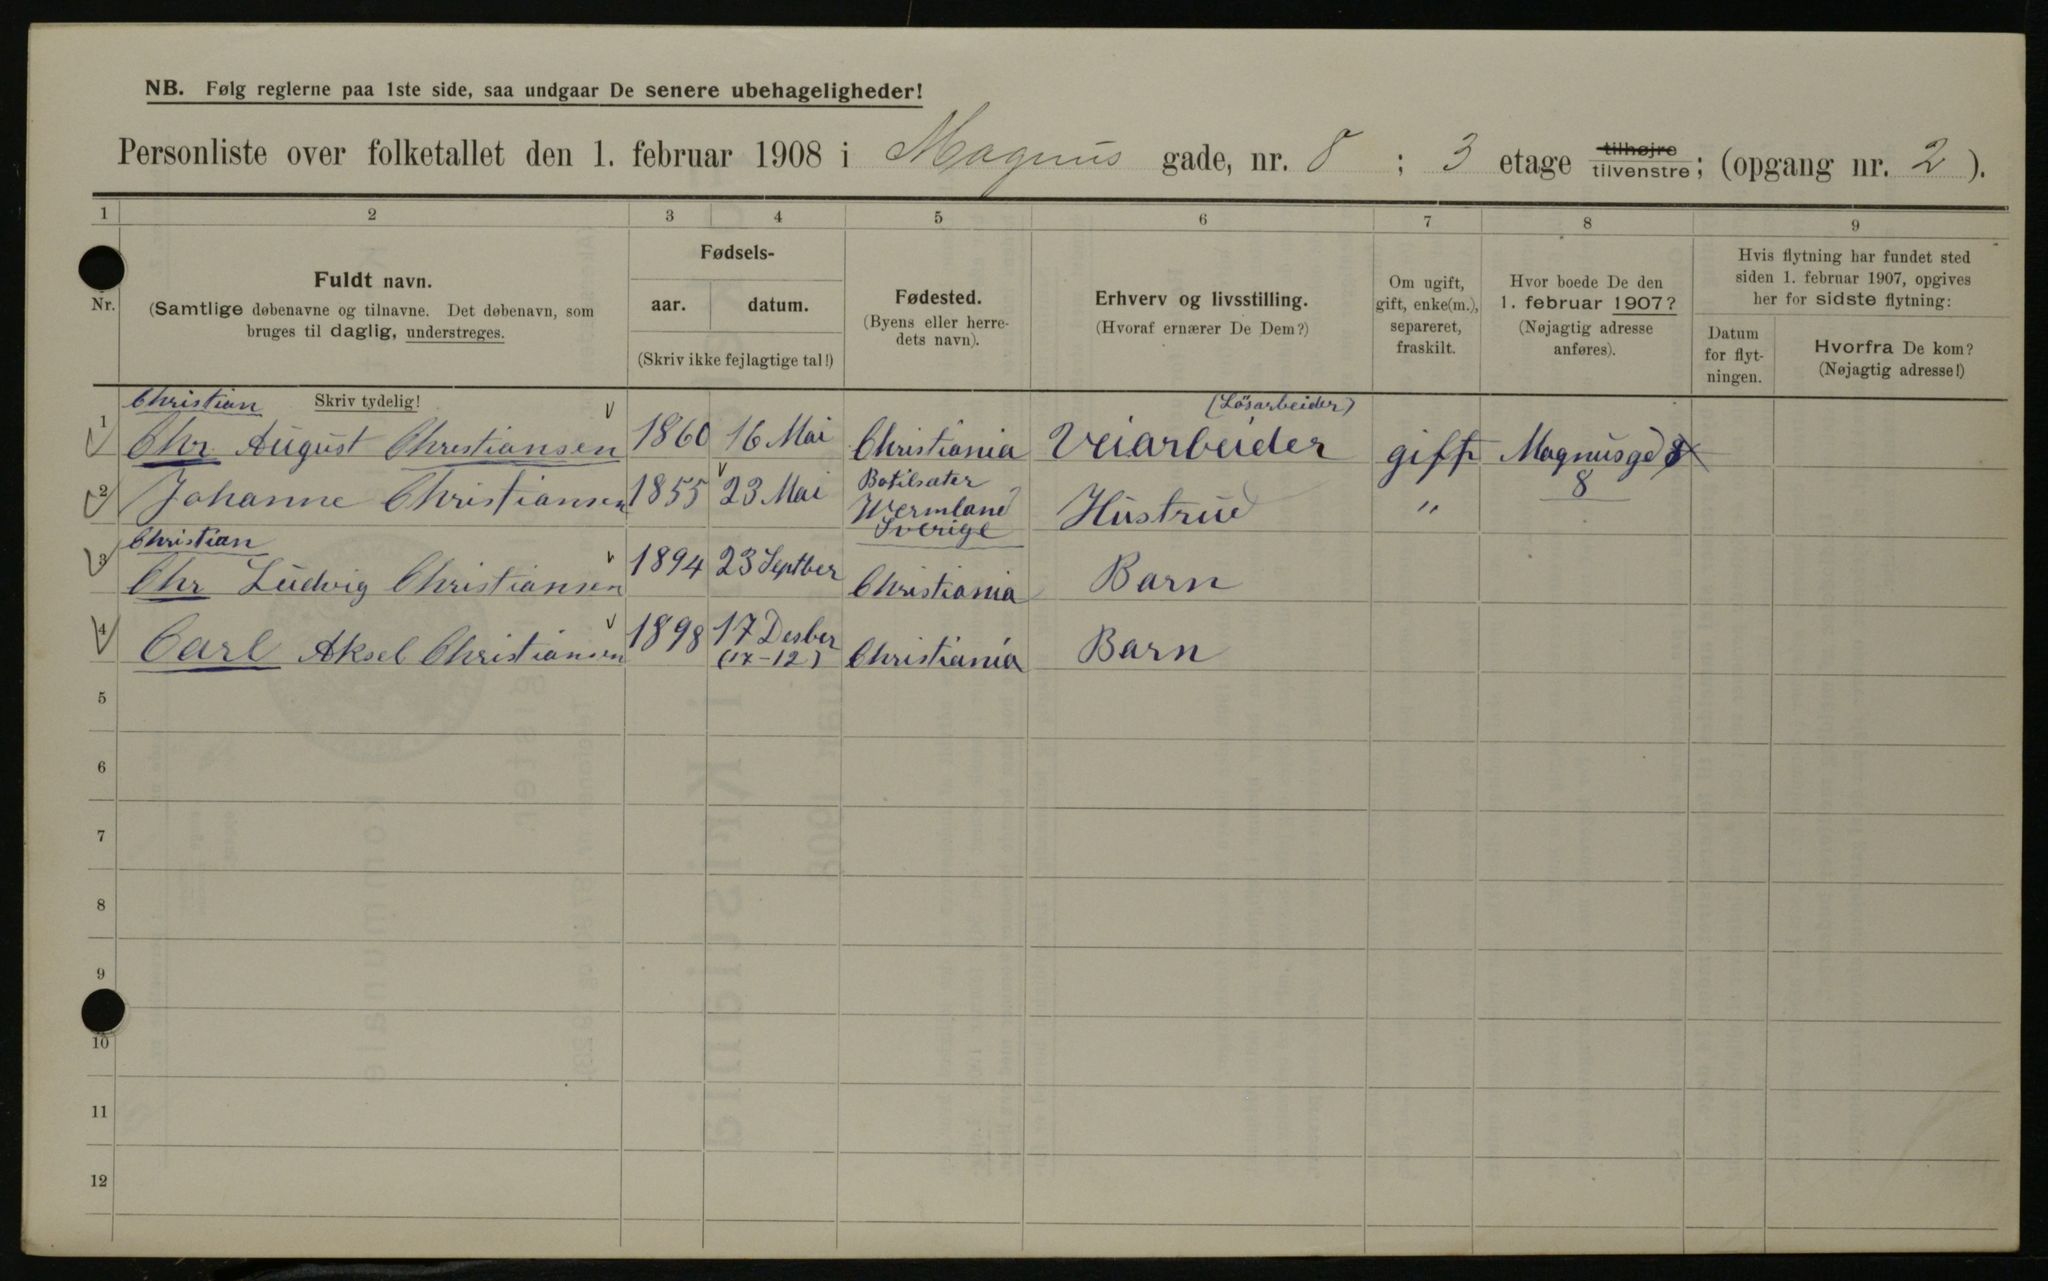 NB. Følg reglerne paa 1ste side, saa undgaar De senere ubehageligheder!
Personliste over folketallet den 1. februar 1908 i Magnus gade, nr. 8 ; 3 etage tilhøjre tilvenstre; (opgang nr. 2 ).
1 2 3 4 5 6 7 8 9
Nr.
Fuldt navn.
(Samtlige døbenavne og tilnavne. Det døbenavn, som
bruges til daglig, understreges.
Skriv tydelig!
Fødsels-
aar. datum.
(Skriv ikke fejlagtige tal!)
Fødested.
(Byens eller herre-
dets navn).
Erhverv og livsstilling.
(Hvoraf ernærer De Dem?)
Om ugift,
gift, enke(m.),
separeret,
fraskilt.
Hvor boede De den
1. februar 1907?
(Nøjagtig adresse
anføres).
Hvis flytning har fundet sted
siden 1. februar 1907, opgives
her for sidste flytning:
Datum
for flyt-
ningen.
Hvorfra De kom?
(Nøjagtig adresse!)
Christian (Lösarbeider)
1 Chr. August Christiansen 1860 16 Mai Christiania Veiarbeider gift Magnusgd 8
8
2 Johanne Christiansen 1855 23 Mai Botilsäter
Wermland
Sverige Hustrue "
Christian
3 Chr Ludvig Christiansen 1894 23 Septber Christiania Barn
4 Carl Aksel Christiansen 1898 17 Desber
(17-12) Christiania Barn
5
6
7
8
9
10
11
12